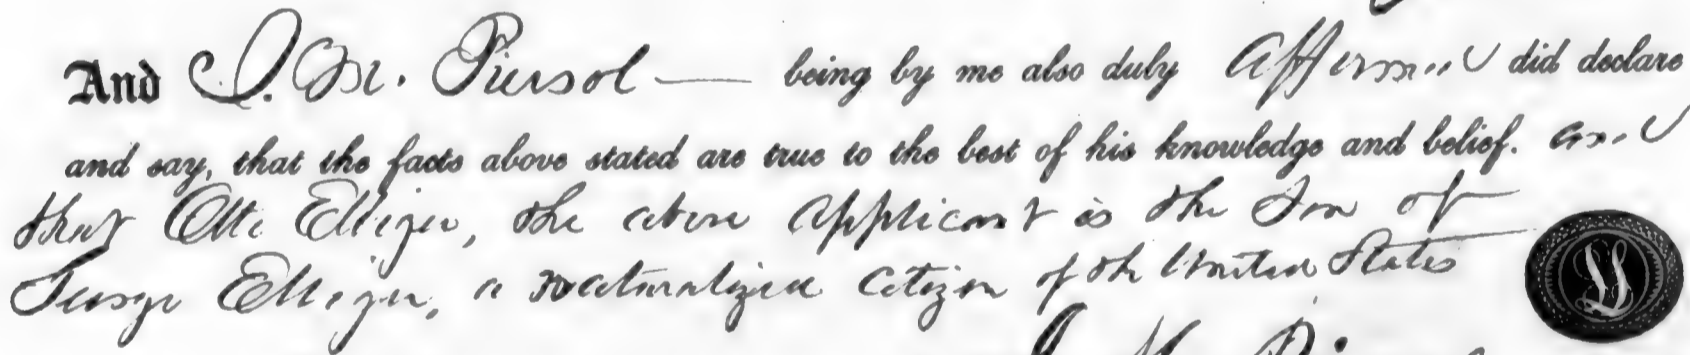 And J. M. Piersol — being by me also duly affirmed did declare
and say, that the facts above stated are true to the best of his knowledge and belief. and
that Otto Elliger, the above applicant is the Son of
George Elliger, a naturalized Citizen of the United States